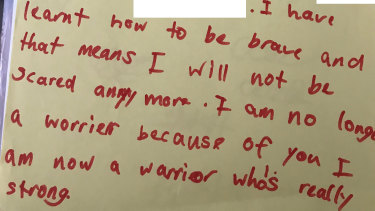 . I have
learnt how to be brave and
that means I will not be
scared anymore. I am no longe
a worrier because of you I
am now a warrior who's really
strong.